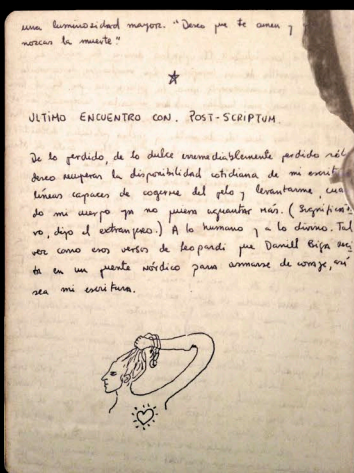 una luminosidad mayor. "Deseo que te amen y
nozcas la muerte."
ULTIMO ENCUENTRO CON. POST-SCRIPTUM.
De lo perdido, de lo dulce irremediablemente perdido sólo
deseo recuperar la disponibilidad cotidiana de mi escritu
líneas capaces de cogerme del pelo y levantarme, cuan
do mi cuerpo ya no quiera aguantar más. (Significati
vo, dijo el extranjero.) A lo humano y a lo divino. Tal
vez como esos versos de Leopardi que Daniel Biga reci
ta en un puente nórdico para armarse de coraje, así
sea mi escritura.